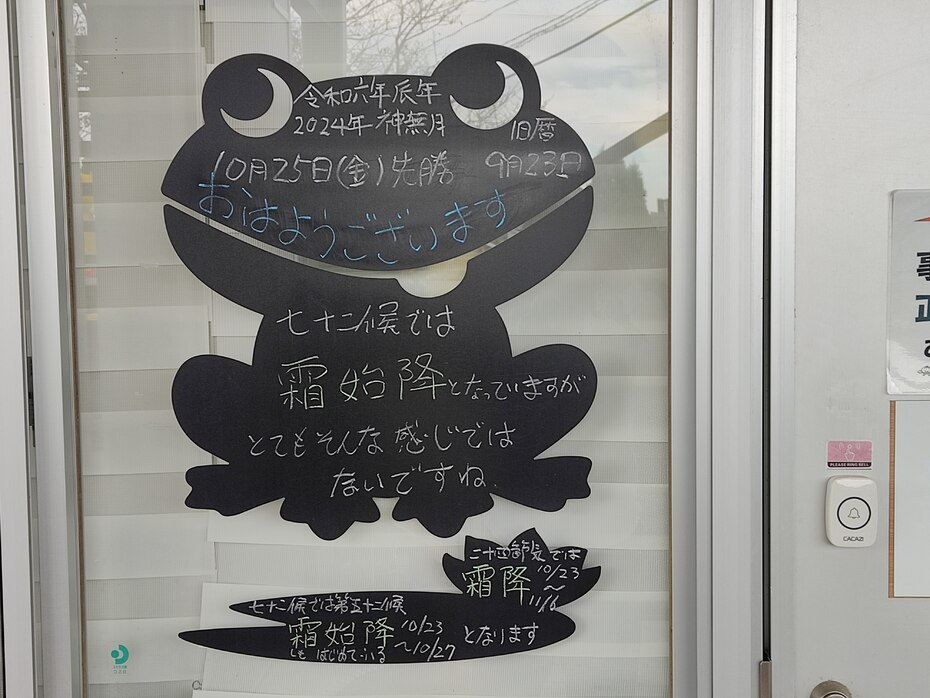 令和六年辰年
2024年 神無月
旧暦
10月25日(金)先勝 9月23日
おはようございます
七十二候では
霜始降となっていますが
とてもそんな感じでは
ないですね.
二十四節気では
霜降 10/23
～
11/6
七十二候では第五十二候
霜始降 10/23
しも はじめて ふる ～10/27
となります
PLEASE RING BELL
CACAZI